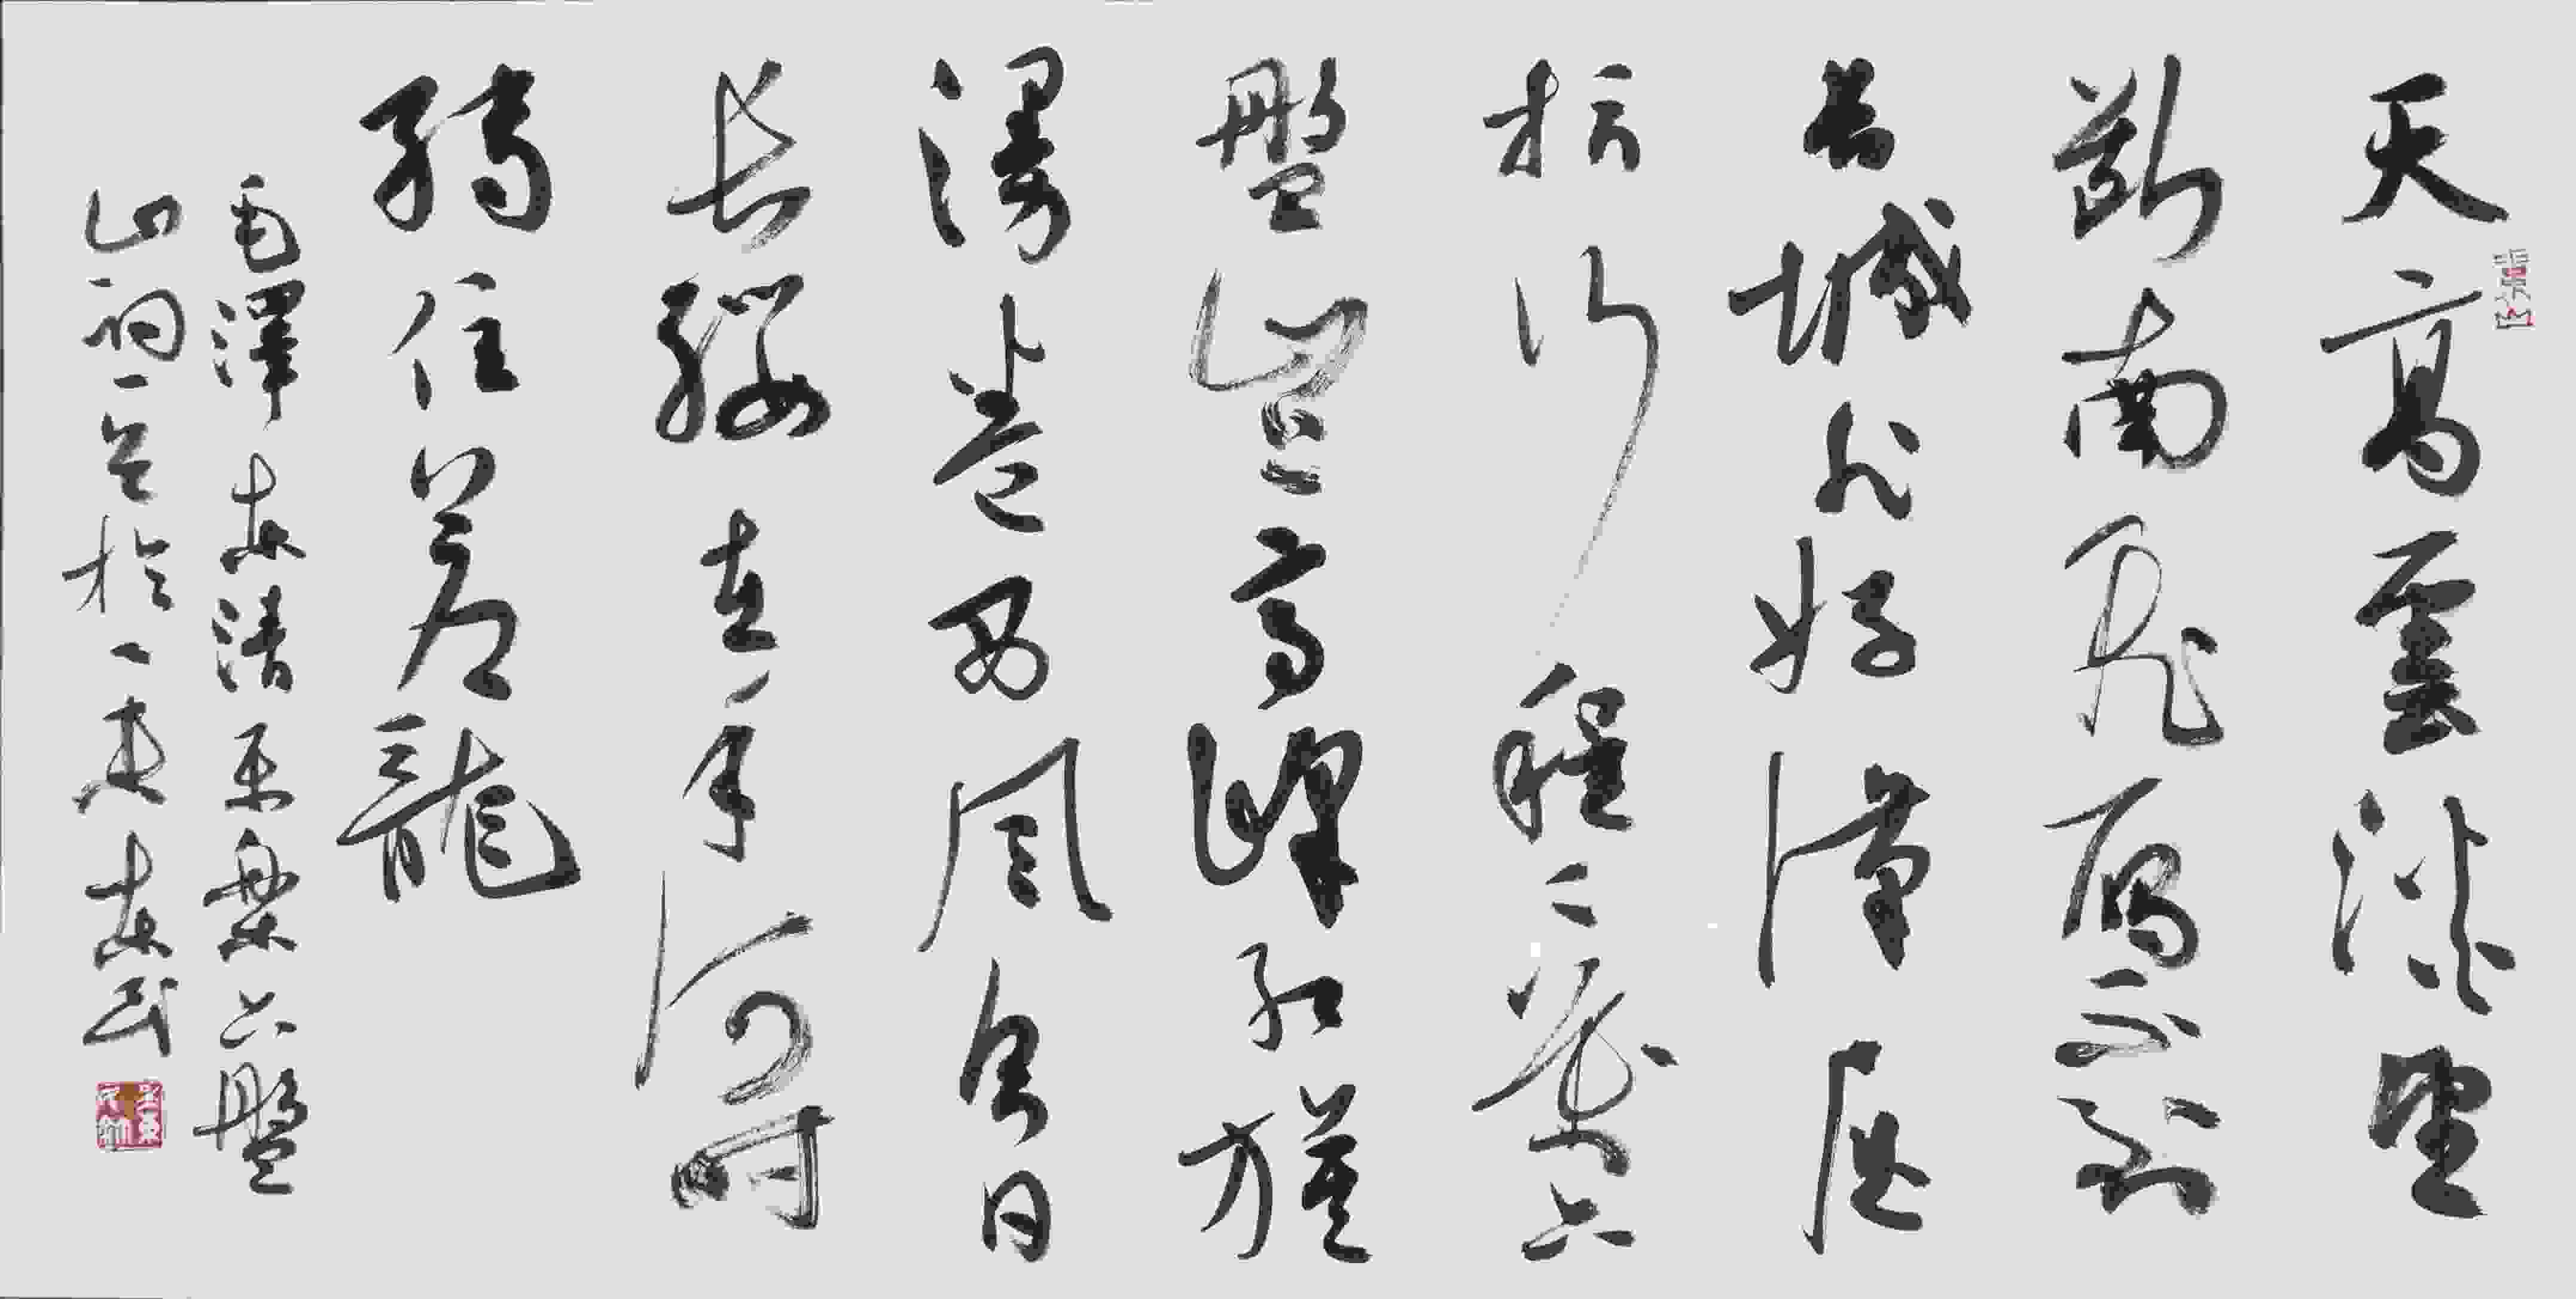 天高雲淡望
斷南飛雁不到
長城非好漢屈
指行程二萬六
盤山上高峰紅旗
漫卷西風今日
長纓在手何時
縛住蒼龍
毛澤東清平樂六盤
山詞一首於